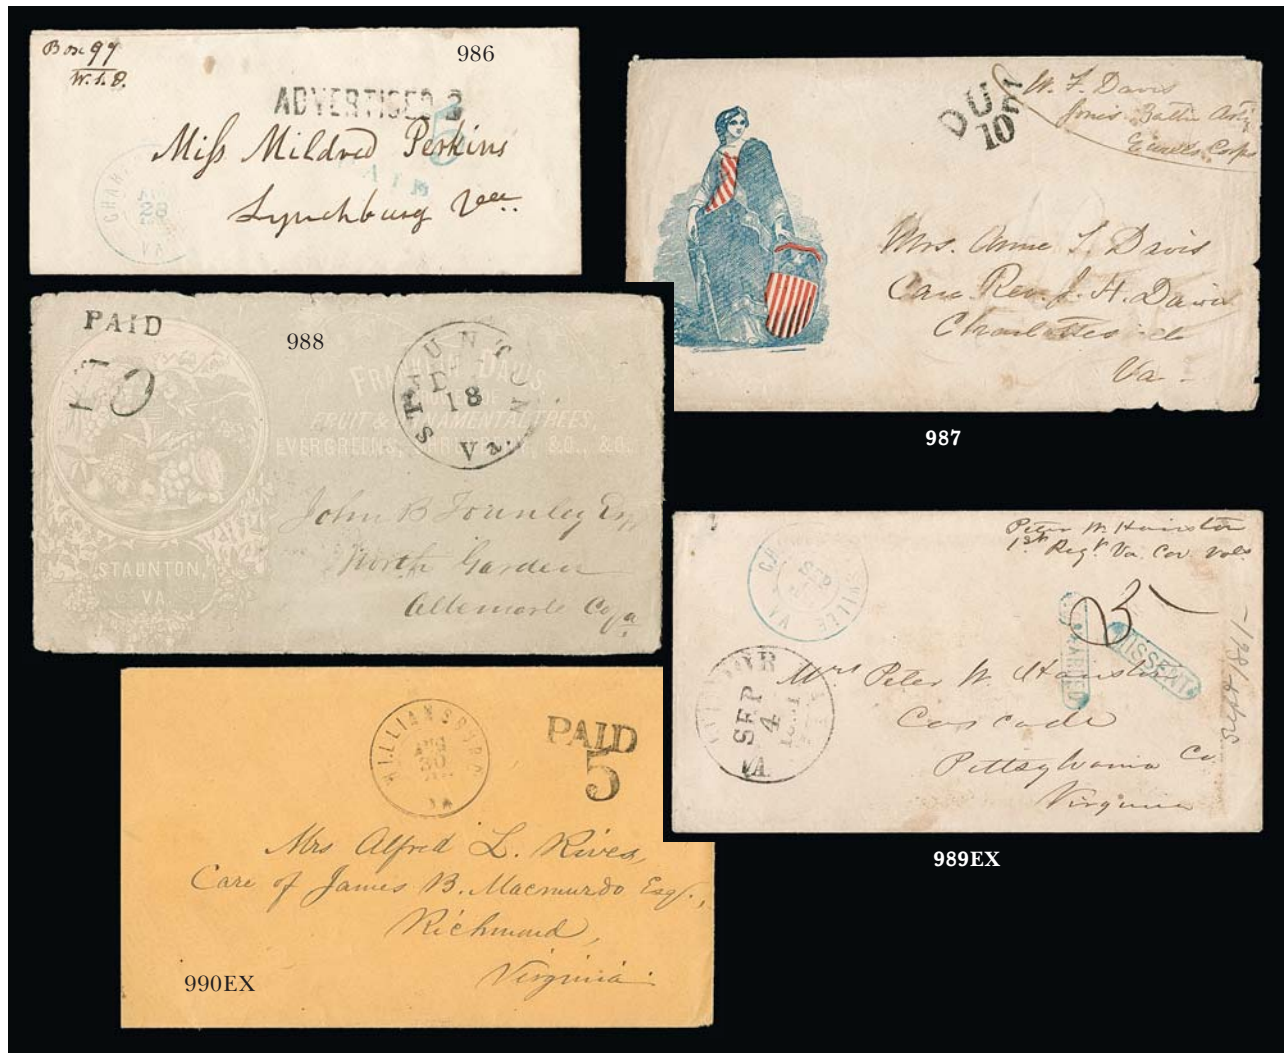 Box 99
W.S.D.
986
ADVERTISED 2
5
PAID
Miss Mildred Perkins
Lynchburg Vaa.
VA
DUE
10
W. F. Davis
Jones Battn Arty
Ewells Corps
Mrs. Anne L. Davis
Care Rev. J. H. Davis
Charlottesville
Va-
987
PAID
10
988
STAUNTON
18
Va.
FRANKLIN DAVIS
FRUIT & ORNAMENTAL TREES,
EVERGREENS, SHRUBBERY, &C., &C.
STAUNTON,
VA
John B Townley Esq
North Garden
Albemarle Co
Peter W. Hairston
1st Regt Va. Cav. Vols
SEP
VILLE VA
5
CARRIED
MISSENT
SEP
4
1861
VA.
Mrs Peter W. Hairston
Cascade
Pittsylvania Co.
Virginia
Sept 4/61/-
989EX
WILLIAMSBURG
AUG
30
VA
PAID
5
Mrs Alfred L. Rives,
Care of James B. Macmurdo Esqr.,
Richmond,
Virginia.
990EX